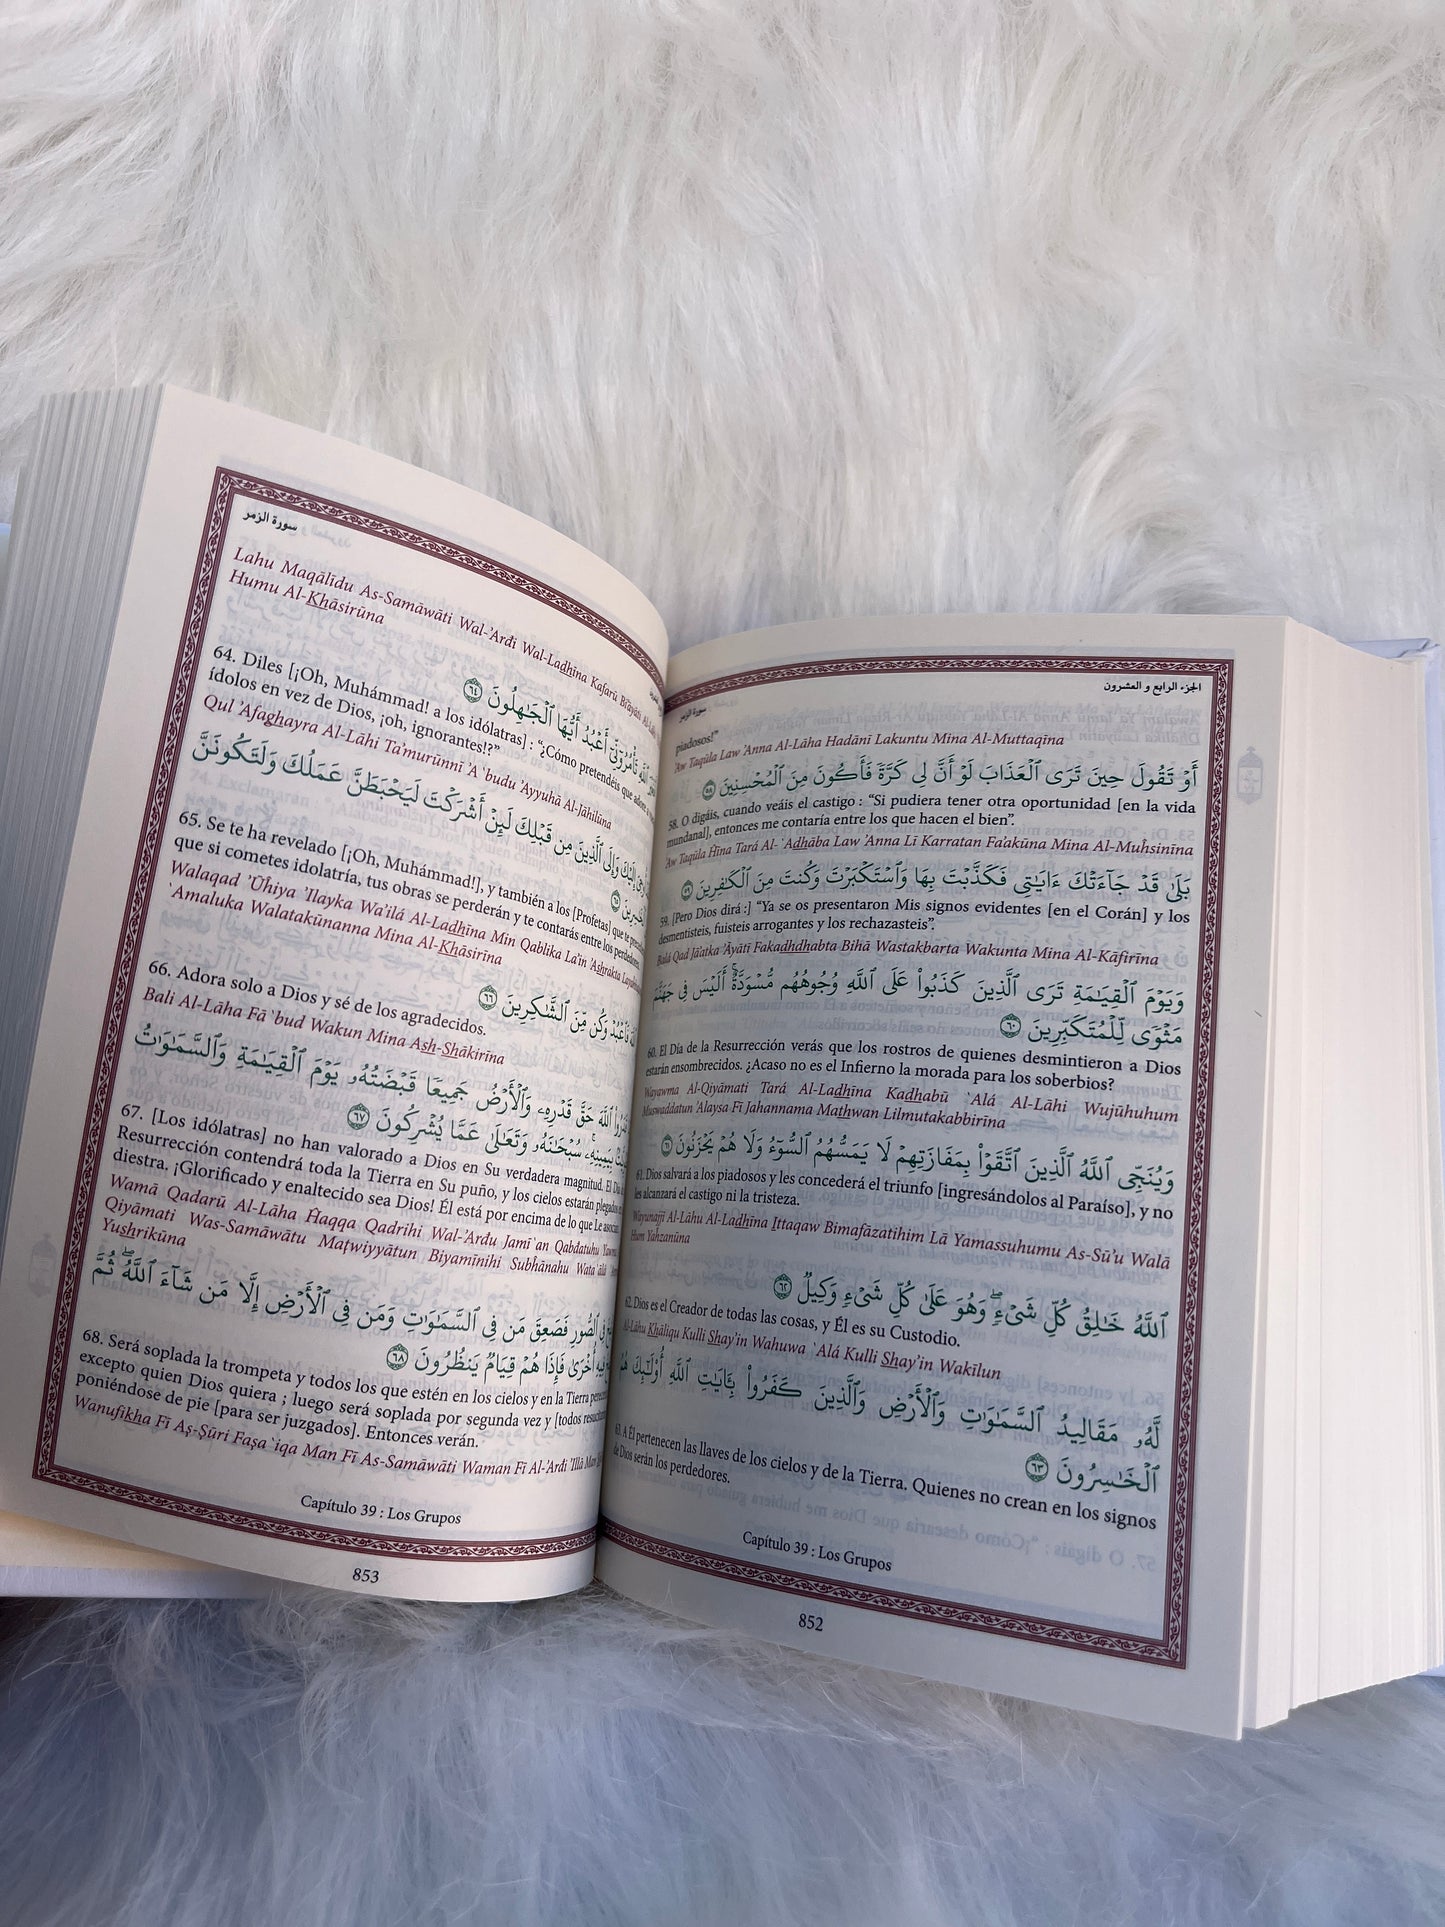 سورة الزمر الجزء الرابع و العشرون
piadosos!”
’Aw Taqūla Law ’Anna Al-Lāha Hadānī Lakuntu Mina Al-Muttaqīna
أَوْ تَقُولَ حِينَ تَرَى ٱلْعَذَابَ لَوْ أَنَّ لِي كَرَّةً فَأَكُونَ مِنَ ٱلْمُحْسِنِينَ ٥٨
58. O digáis, cuando veáis el castigo : “Si pudiera tener otra oportunidad [en la vida
mundanal], entonces me contaría entre los que hacen el bien”.
’Aw Taqūla Ĥīna Tará Al-`Adhāba Law ’Anna Lī Karratan Fa’akūna Mina Al-Muĥsinīna
بَلَىٰ قَدْ جَآءَتْكَ ءَايَٰتِى فَكَذَّبْتَ بِهَا وَٱسْتَكْبَرْتَ وَكُنتَ مِنَ ٱلْكَٰفِرِينَ ٥٩
59. [Pero Dios dirá :] “Ya se os presentaron Mis signos evidentes [en el Corán] y los
desmentisteis, fuisteis arrogantes y los rechazasteis”.
Balá Qad Jā’atka ’Āyātī Fakadhdhabta Bihā Wastakbarta Wakunta Mina Al-Kāfirīna
وَيَوْمَ ٱلْقِيَٰمَةِ تَرَى ٱلَّذِينَ كَذَبُوا۟ عَلَى ٱللَّهِ وُجُوهُهُم مُّسْوَدَّةٌ ۚ أَلَيْسَ فِى جَهَنَّمَ
مَثْوًى لِّلْمُتَكَبِّرِينَ ٦٠
60. El Día de la Resurrección verás que los rostros de quienes desmintieron a Dios
estarán ensombrecidos. ¿Acaso no es el Infierno la morada para los soberbios?
Wayawma Al-Qiyāmati Tará Al-Ladhīna Kadhabū `Alá Al-Lāhi Wujūhuhum
Muswaddatun ’Alaysa Fī Jahannama Mathwan Lilmutakabbirīna
وَيُنَجِّى ٱللَّهُ ٱلَّذِينَ ٱتَّقَوْا۟ بِمَفَازَتِهِمْ لَا يَمَسُّهُمُ ٱلسُّوٓءُ وَلَا هُمْ يَحْزَنُونَ ٦١
61. Dios salvará a los piadosos y les concederá el triunfo [ingresándolos al Paraíso], y no
les alcanzará el castigo ni la tristeza.
Wayunajjī Al-Lāhu Al-Ladhīna Ittaqaw Bimafāzatihim Lā Yamassuhumu As-Sū’u Walā
Hum Yaĥzanūna
ٱللَّهُ خَٰلِقُ كُلِّ شَىْءٍ ۖ وَهُوَ عَلَىٰ كُلِّ شَىْءٍ وَكِيلٌ ٦٢
62. Dios es el Creador de todas las cosas, y Él es su Custodio.
Al-Lāhu Khāliqu Kulli Shay’in Wahuwa `Alá Kulli Shay’in Wakīlun
لَّهُۥ مَقَالِيدُ ٱلسَّمَٰوَٰتِ وَٱلْأَرْضِ وَٱلَّذِينَ كَفَرُوا۟ بِـَٔايَٰتِ ٱللَّهِ أُو۟لَٰٓئِكَ هُمُ
ٱلْخَٰسِرُونَ ٦٣
63. A Él pertenecen las llaves de los cielos y de la Tierra. Quienes no crean en los signos
de Dios serán los perdedores.
Capítulo 39 : Los Grupos
852
سورة الزمر
Lahu Maqālīdu As-Samāwāti Wal-’Arđi Wal-Ladhīna Kafarū Bi’āyāti
Humu Al-Khāsirūna
ٱللَّهِ تَأْمُرُوٓنِّىٓ أَعْبُدُ أَيُّهَا ٱلْجَٰهِلُونَ ٦٤
64. Diles [¡Oh, Muhámmad! a los idólatras] : “¿Cómo pretendéis que adore a
ídolos en vez de Dios, ¡oh, ignorantes!?”
Qul ’Afaghayra Al-Lāhi Ta’murūnnī ’A `budu ’Ayyuhā Al-Jāhilūna
إِلَيْكَ وَإِلَى ٱلَّذِينَ مِن قَبْلِكَ لَئِنْ أَشْرَكْتَ لَيَحْبَطَنَّ عَمَلُكَ وَلَتَكُونَنَّ
٦٥
65. Se te ha revelado [¡Oh, Muhámmad!], y también a los [Profetas] que te
que si cometes idolatría, tus obras se perderán y te contarás entre los perdedores
Walaqad ’Ūĥiya ’Ilayka Wa’ilá Al-Ladhīna Min Qablika La’in ’Ashrakta
`Amaluka Walatakūnanna Mina Al-Khāsirīna
فَٱعْبُدْ وَكُن مِّنَ ٱلشَّٰكِرِينَ ٦٦
66. Adora solo a Dios y sé de los agradecidos.
Bali Al-Lāha Fā`bud Wakun Mina Ash-Shākirīna
ٱللَّهَ حَقَّ قَدْرِهِۦ وَٱلْأَرْضُ جَمِيعًا قَبْضَتُهُۥ يَوْمَ ٱلْقِيَٰمَةِ وَٱلسَّمَٰوَٰتُ
بِيَمِينِهِۦ ۚ سُبْحَٰنَهُۥ وَتَعَٰلَىٰ عَمَّا يُشْرِكُونَ ٦٧
67. [Los idólatras] no han valorado a Dios en Su verdadera magnitud. El Día
Resurrección contendrá toda la Tierra en Su puño, y los cielos estarán plegados
diestra. ¡Glorificado y enaltecido sea Dios! Él está por encima de lo que Le
Wamā Qadarū Al-Lāha Ĥaqqa Qadrihi Wal-’Arđu Jamī`an Qabđatuhu Yawma
Qiyāmati Was-Samāwātu Maţwiyyātun Biyamīnihi Subĥānahu
Yushrikūna
فِى ٱلصُّورِ فَصَعِقَ مَن فِى ٱلسَّمَٰوَٰتِ وَمَن فِى ٱلْأَرْضِ إِلَّا مَن شَآءَ ٱللَّهُ ۖ ثُمَّ
فِيهِ أُخْرَىٰ فَإِذَا هُمْ قِيَامٌ يَنظُرُونَ ٦٨
68. Será soplada la trompeta y todos los que estén en los cielos y en la Tierra
excepto quien Dios quiera ; luego será soplada por segunda vez y [todos
poniéndose de pie [para ser juzgados]. Entonces verán.
Wanufikha Fī Aş-Şūri Faşa`iqa Man Fī As-Samāwāti Waman Fī Al-’Arđi ’Illā Man
Capítulo 39 : Los Grupos
853